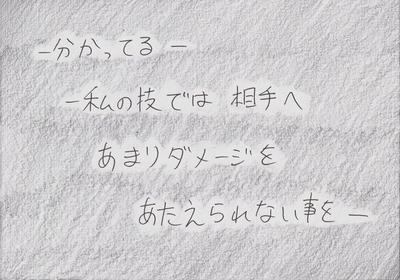 ―分かってる―
―私の技では 相手へ
あまりダメージを
あたえられない事を―